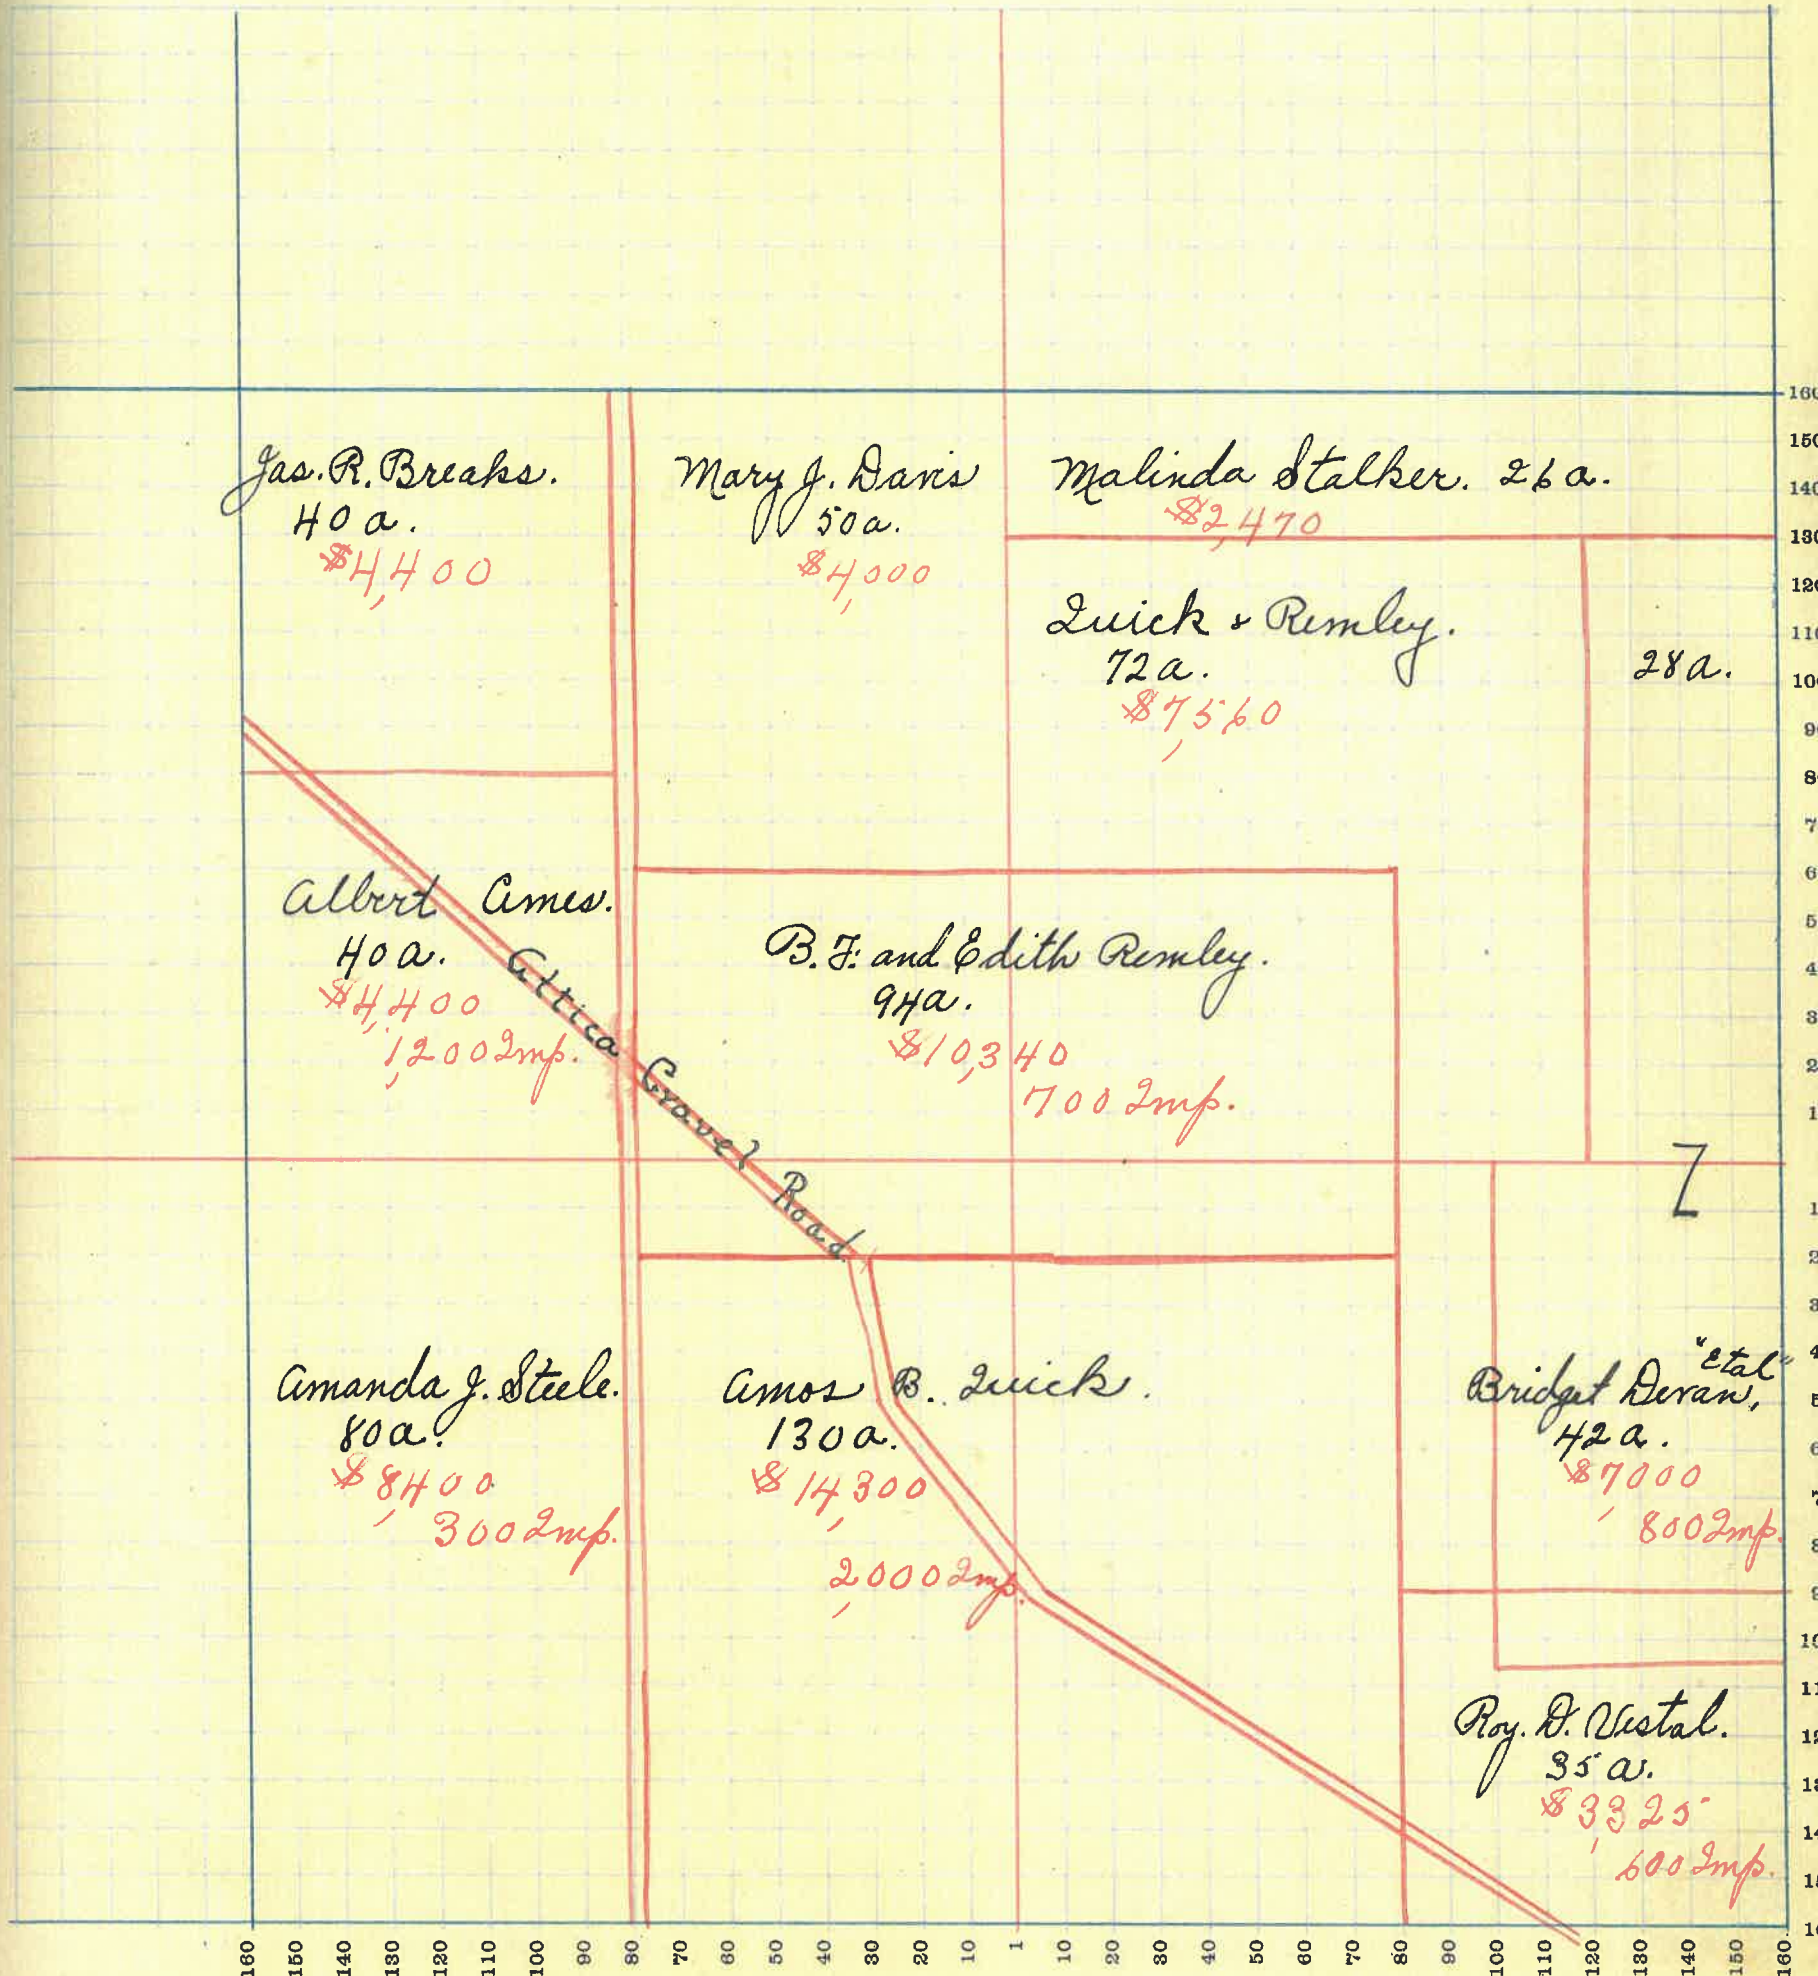 Jas. R. Breaks.
40 a.
$4,400
Mary J. Davis
50a.
$4,000
Malinda Stalker. 26 a.
$2,470
Quick & Remley.
72a.
$7,560
28a.
Albert Ames.
40a.
$4,400
1,200 Imp.
Attica Gravel Road
B. F. and Edith Remley.
94a.
$10,340
700 Imp.
Amanda J. Steele.
80a.
$8,400
300 Imp.
Amos B. Quick.
130a.
$14,300
2,000 Imp.
"Etal"
Bridget Devan,
42a.
$7,000
800 Imp.
Roy. D. Vestal.
35 a.
$3,325
600 Imp.
160
150
140
130
120
110
100
160 150 140 130 120 110 100 90 80 70 60 50 40 30 20 10 1 10 20 30 40 50 60 70 80 90 100 110 120 130 140 150 160